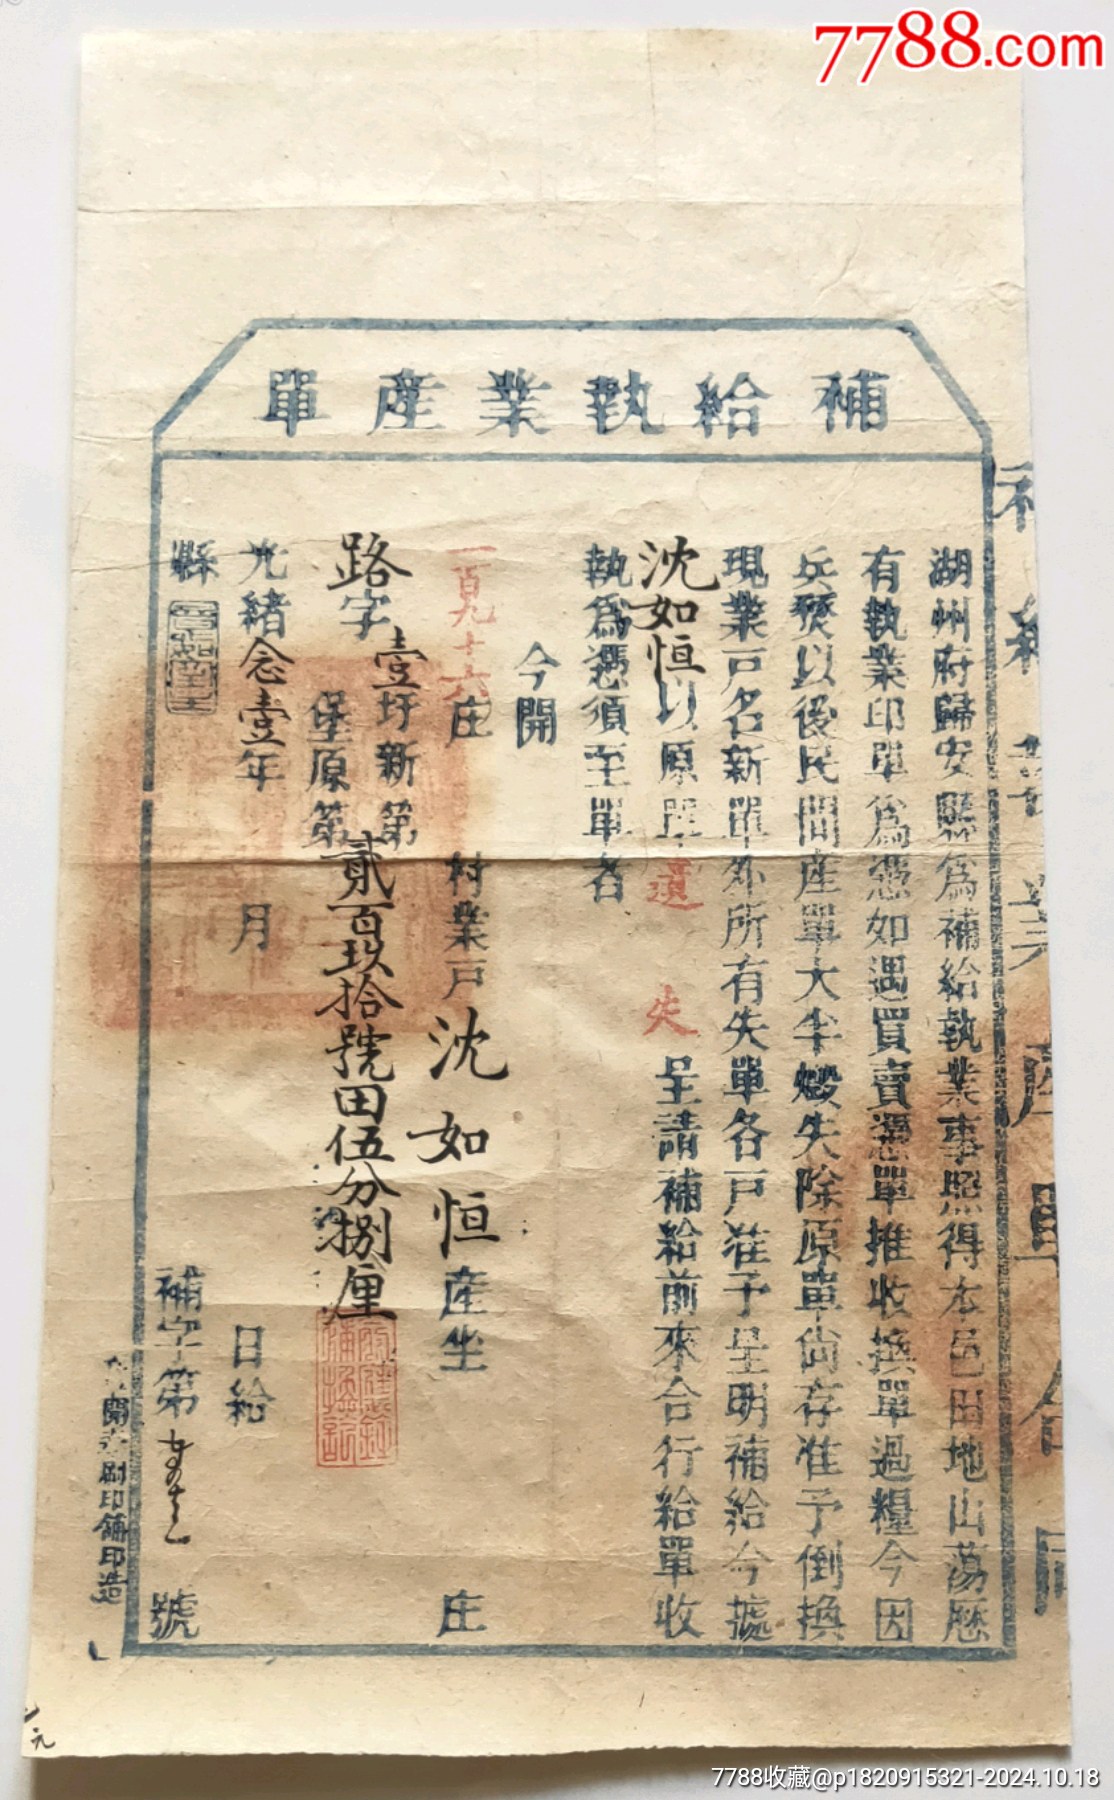 7788.com
補給執業產單
湖州府歸安縣為補給執業事照得本邑田地山蕩歷
有執業印單為憑如遇買賣憑單推收換單過糧今因
兵燹以後民間產單大半燬失除原單尚存准予倒換
現業戶名新單外所有失單各戶准予呈明補給今據
沈如恒以原單遺失呈請補給前來合行給單收
執為憑須至單者
今開
一百九十六庄村業戶沈如恒產坐庄
路字壹圩新第
堡原第貳百玖拾號田伍分捌厘
光緒念壹年月日給
縣
補字第號
印舖印造
元
7788收藏@p1820915321-2024.10.18